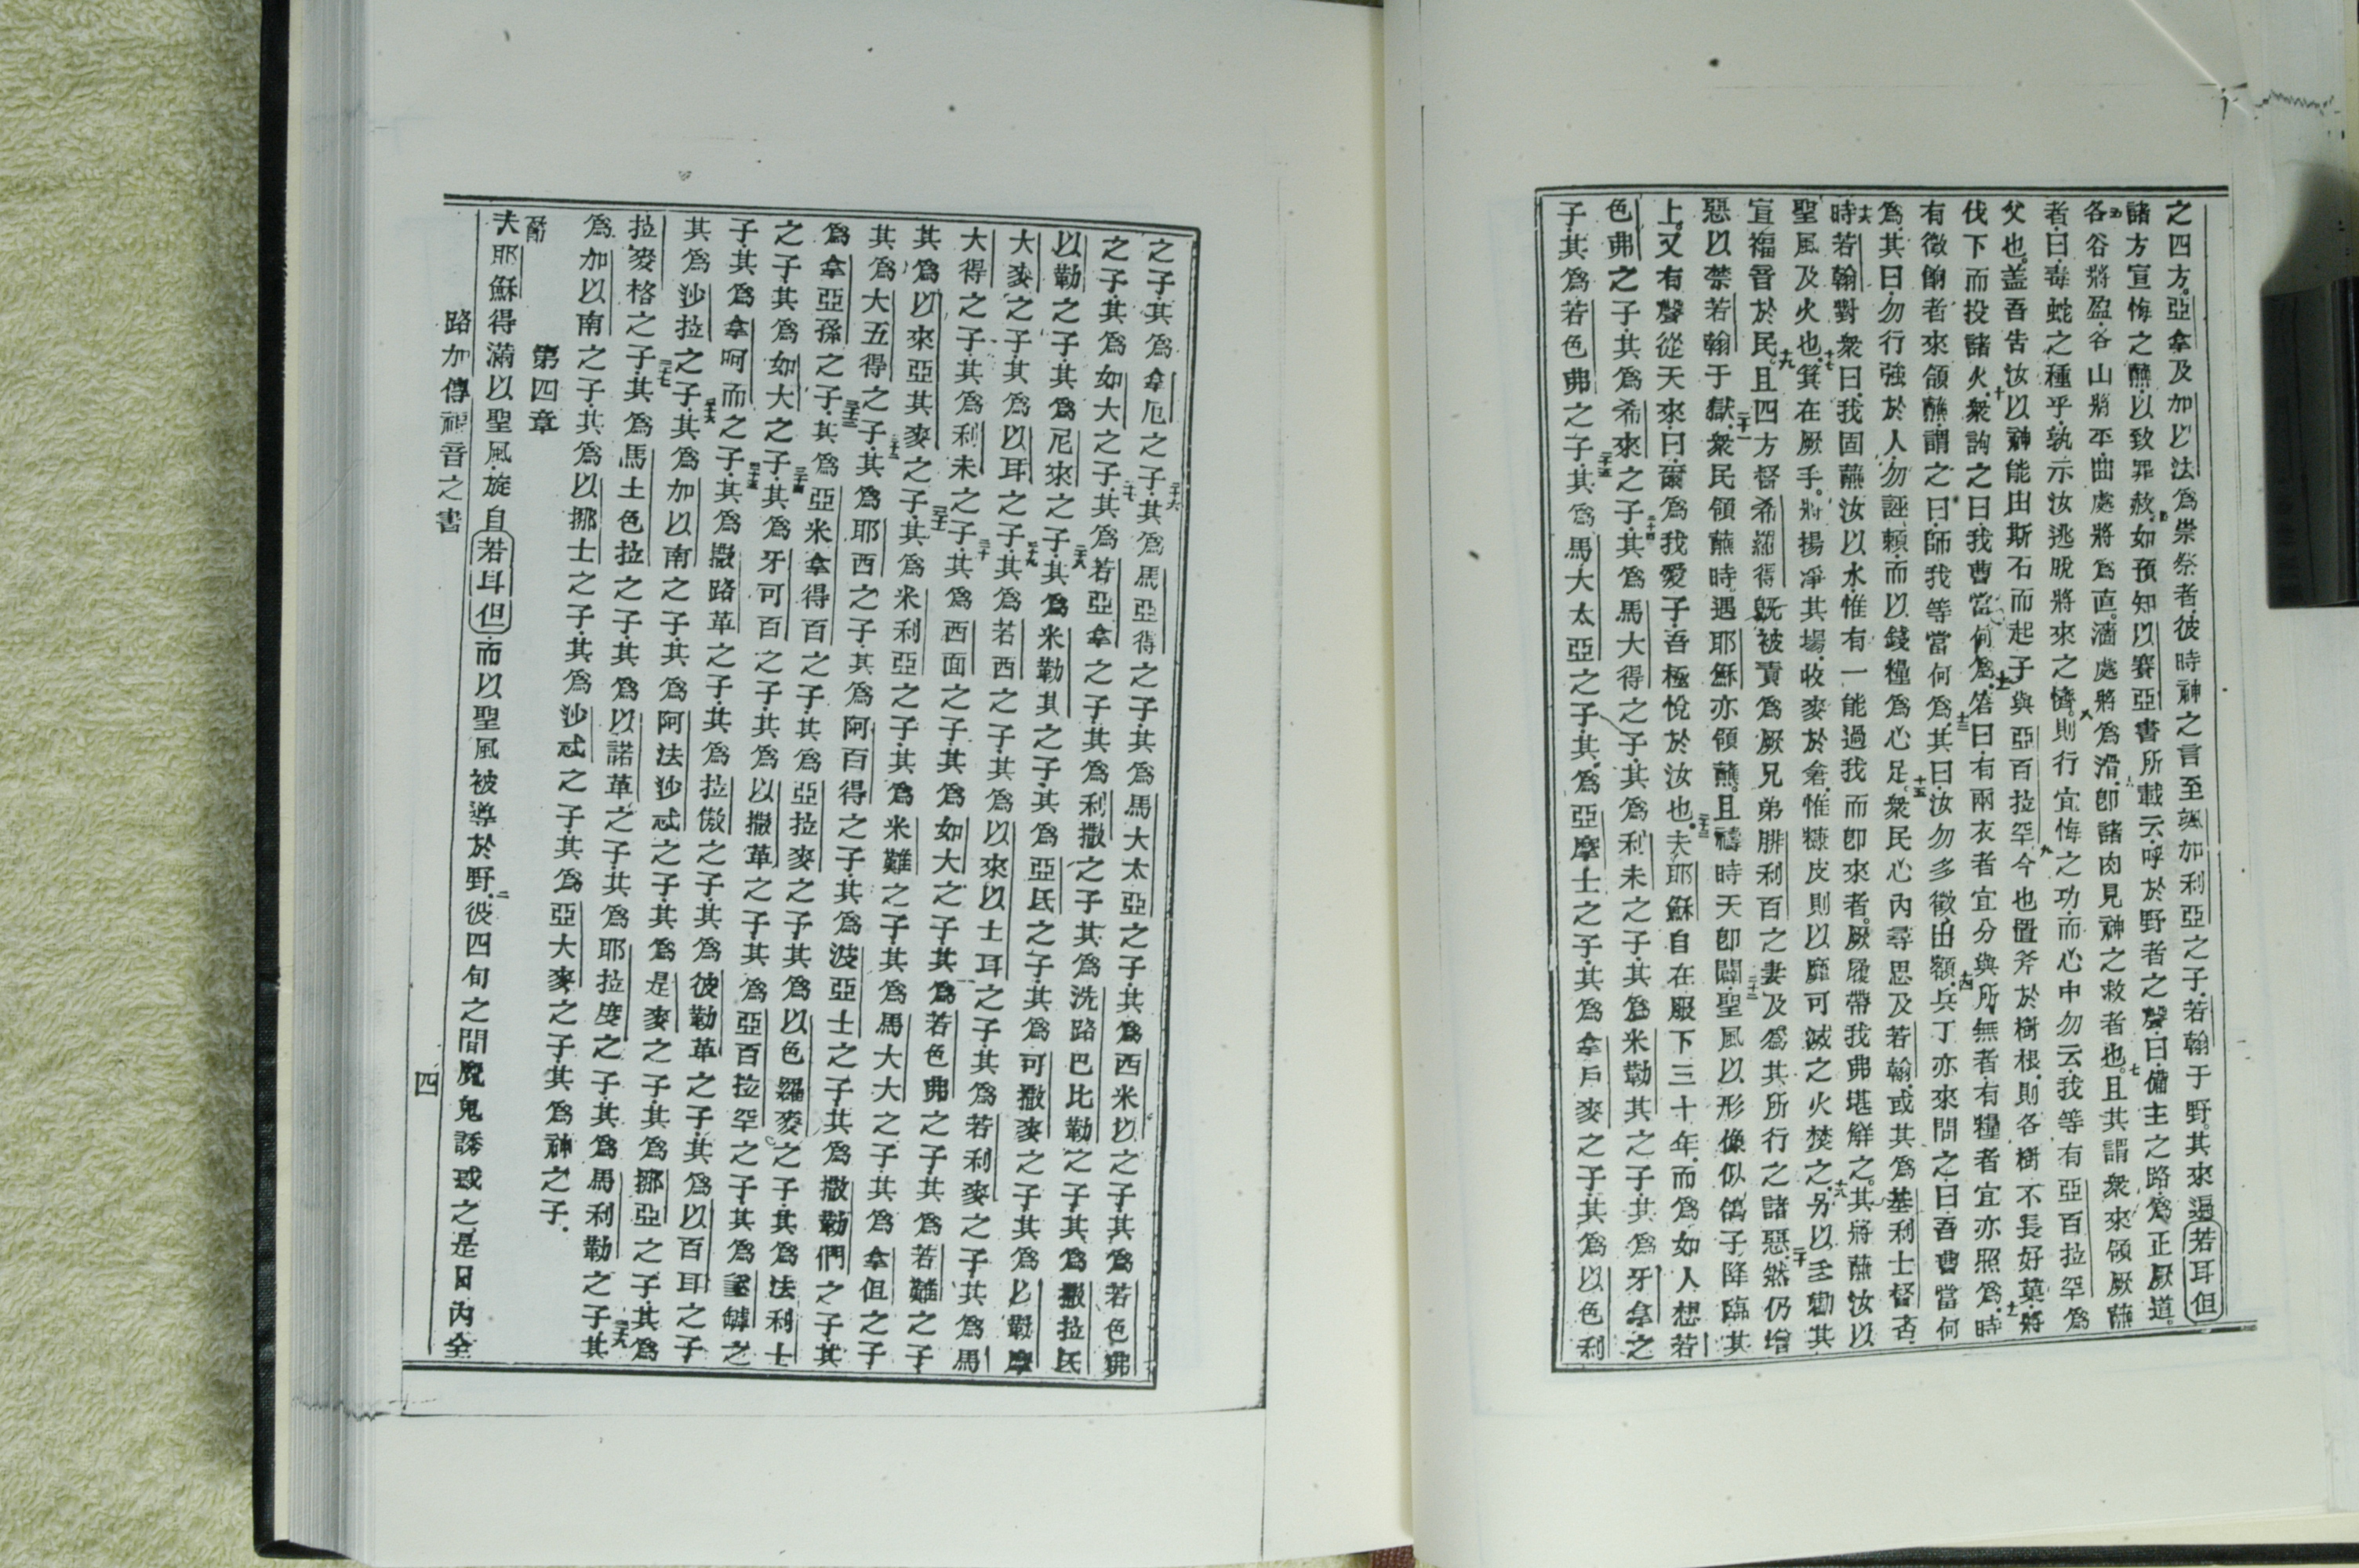 之四方。亞拿及加以法爲崇祭者、彼時神之言至颯加利亞之子、若翰于野。其來遍若耳但
諸方宣悔之蘸、以致罪赦。四如預知以賽亞書所載云、呼於野者之聲、曰、備主之路、爲正厥道。
五各谷將盈、各山將平、曲處將爲直。濇處將爲滑、六卽諸肉見神之救者也。七且其謂衆來領厥蘸
者、曰、毒蛇之種乎、孰示汝逃脫將來之儕。八則行宜悔之功、而心中勿云、我等有亞百拉罕爲
父也。蓋吾告汝以神能由斯石而起子與亞百拉罕。九今也置斧於樹根、則各樹不長好菓、將
伐下而投諸火。十衆詢之曰、我曹當何爲。十一答曰、有兩衣者宜分與所無者、有糧者宜亦照爲。十二時
有徵餉者來領蘸、謂之曰、師、我等當何爲。十三其曰、汝勿多徵、出額。十四兵丁亦來問之曰、吾曹當何
爲、其曰、勿行強於人、勿誣賴、而以錢糧爲心足。十五衆民心內尋思及若翰、或其爲基利士督否、
十六時若翰對衆曰、我固蘸汝以水、惟有一能過我而卽來者。厥履帶我弗堪解之。其將蘸汝以
聖風及火也。十七箕在厥手。將揚凈其場、收麥於倉、惟糠皮則以靡可滅之火焚之。十八另以多勸其
宣福音於民。十九且四方督希羅得旣被責爲厥兄弟腓利百之妻及爲其所行之諸惡、二十然仍增
惡以禁若翰于獄、二十一衆民領蘸時、遇耶穌亦領蘸。且禱時天卽闢、二十二聖風以形像似鴿子降臨其
上。又有聲從天來曰、爾爲我愛子、吾極悅於汝也。二十三夫耶穌自在厫下三十年、而爲如人想若
色弗之子、其爲希來之子、二十四其爲馬大得之子、其爲利未之子、其爲米勒其之子、其爲牙拿之
子、其爲若色弗之子、二十五其爲馬大太亞之子、其爲亞摩士之子、其爲拿戶麥之子、其爲以色利
之子、其爲拿厄之子、二十六其爲馬亞得之子、其爲馬大太亞之子、其爲西米以之子、其爲若色弗
之子、其爲如大之子、二十七其爲若亞拿之子、其爲利撒之子、其爲洗路巴比勒之子、其爲撒拉氐
以勒之子、其爲尼來之子、二十八其爲米勒其之子、其爲亞氐之子、其爲可撒麥之子、其爲以勒摩
大麥之子、其爲以耳之子、二十九其爲若西之子、其爲以來以士耳之子、其爲若利麥之子、其爲馬
大得之子、其爲利未之子、三十其爲西面之子、其爲如大之子、其爲若色弗之子、其爲若難之子
其爲以來亞其麥之子、三十一其爲米利亞之子、其爲米難之子、其爲馬大大之子、其爲拿但之子
其爲大五得之子、三十二其爲耶西之子、其爲阿百得之子、其爲波亞士之子、其爲撒勒們之子、其
爲拿亞孫之子、三十三其爲亞米拿得百之子、其爲亞拉麥之子、其爲以色羅麥之子、其爲法利士
之子、其爲如大之子、三十四其爲牙可百之子、其爲以撒革之子、其爲亞百拉罕之子、其爲
子、其爲拿呵而之子、三十五其爲撒路革之子、其爲拉傲之子、其爲彼勒革之子、其爲以百耳之子
其爲沙拉之子、三十六其爲加以南之子、其爲阿法沙忒之子、其爲是麥之子、其爲挪亞之子、其爲
拉麥格之子、三十七其爲馬土色拉之子、其爲以諾革之子、其爲耶拉度之子、其爲馬利勒之子、其
爲加以南之子、三十八其爲以挪士之子、其爲沙忒之子、其爲亞大麥之子、其爲神之子。
第四章
夫耶穌得滿以聖風、旋自若耳但、而以聖風被導於野、二彼四旬之間魔鬼誘惑之、是日內全
路加傳福音之書 四